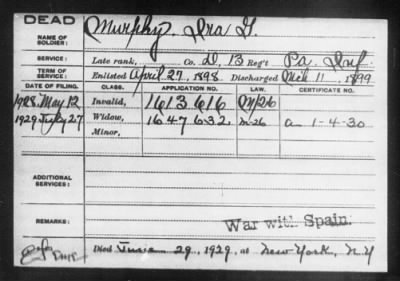 DEAD
NAME OF SOLDIER: Murphy, Ira G.
SERVICE: Late rank, Co. D, 13 Reg't Pa. Inf.
TERM OF SERVICE: Enlisted April 27, 1898 Discharged Mch 11, 1899
DATE OF FILING. CLASS. APPLICATION NO. LAW. CERTIFICATE NO.
1928 May 12 Invalid, 1613616
1929 July 27 Widow, 1647632 M-26 a 1-4-30
Minor,
ADDITIONAL SERVICES:
REMARKS: War with Spain.
Died June 29, 1929, at New York, N.Y